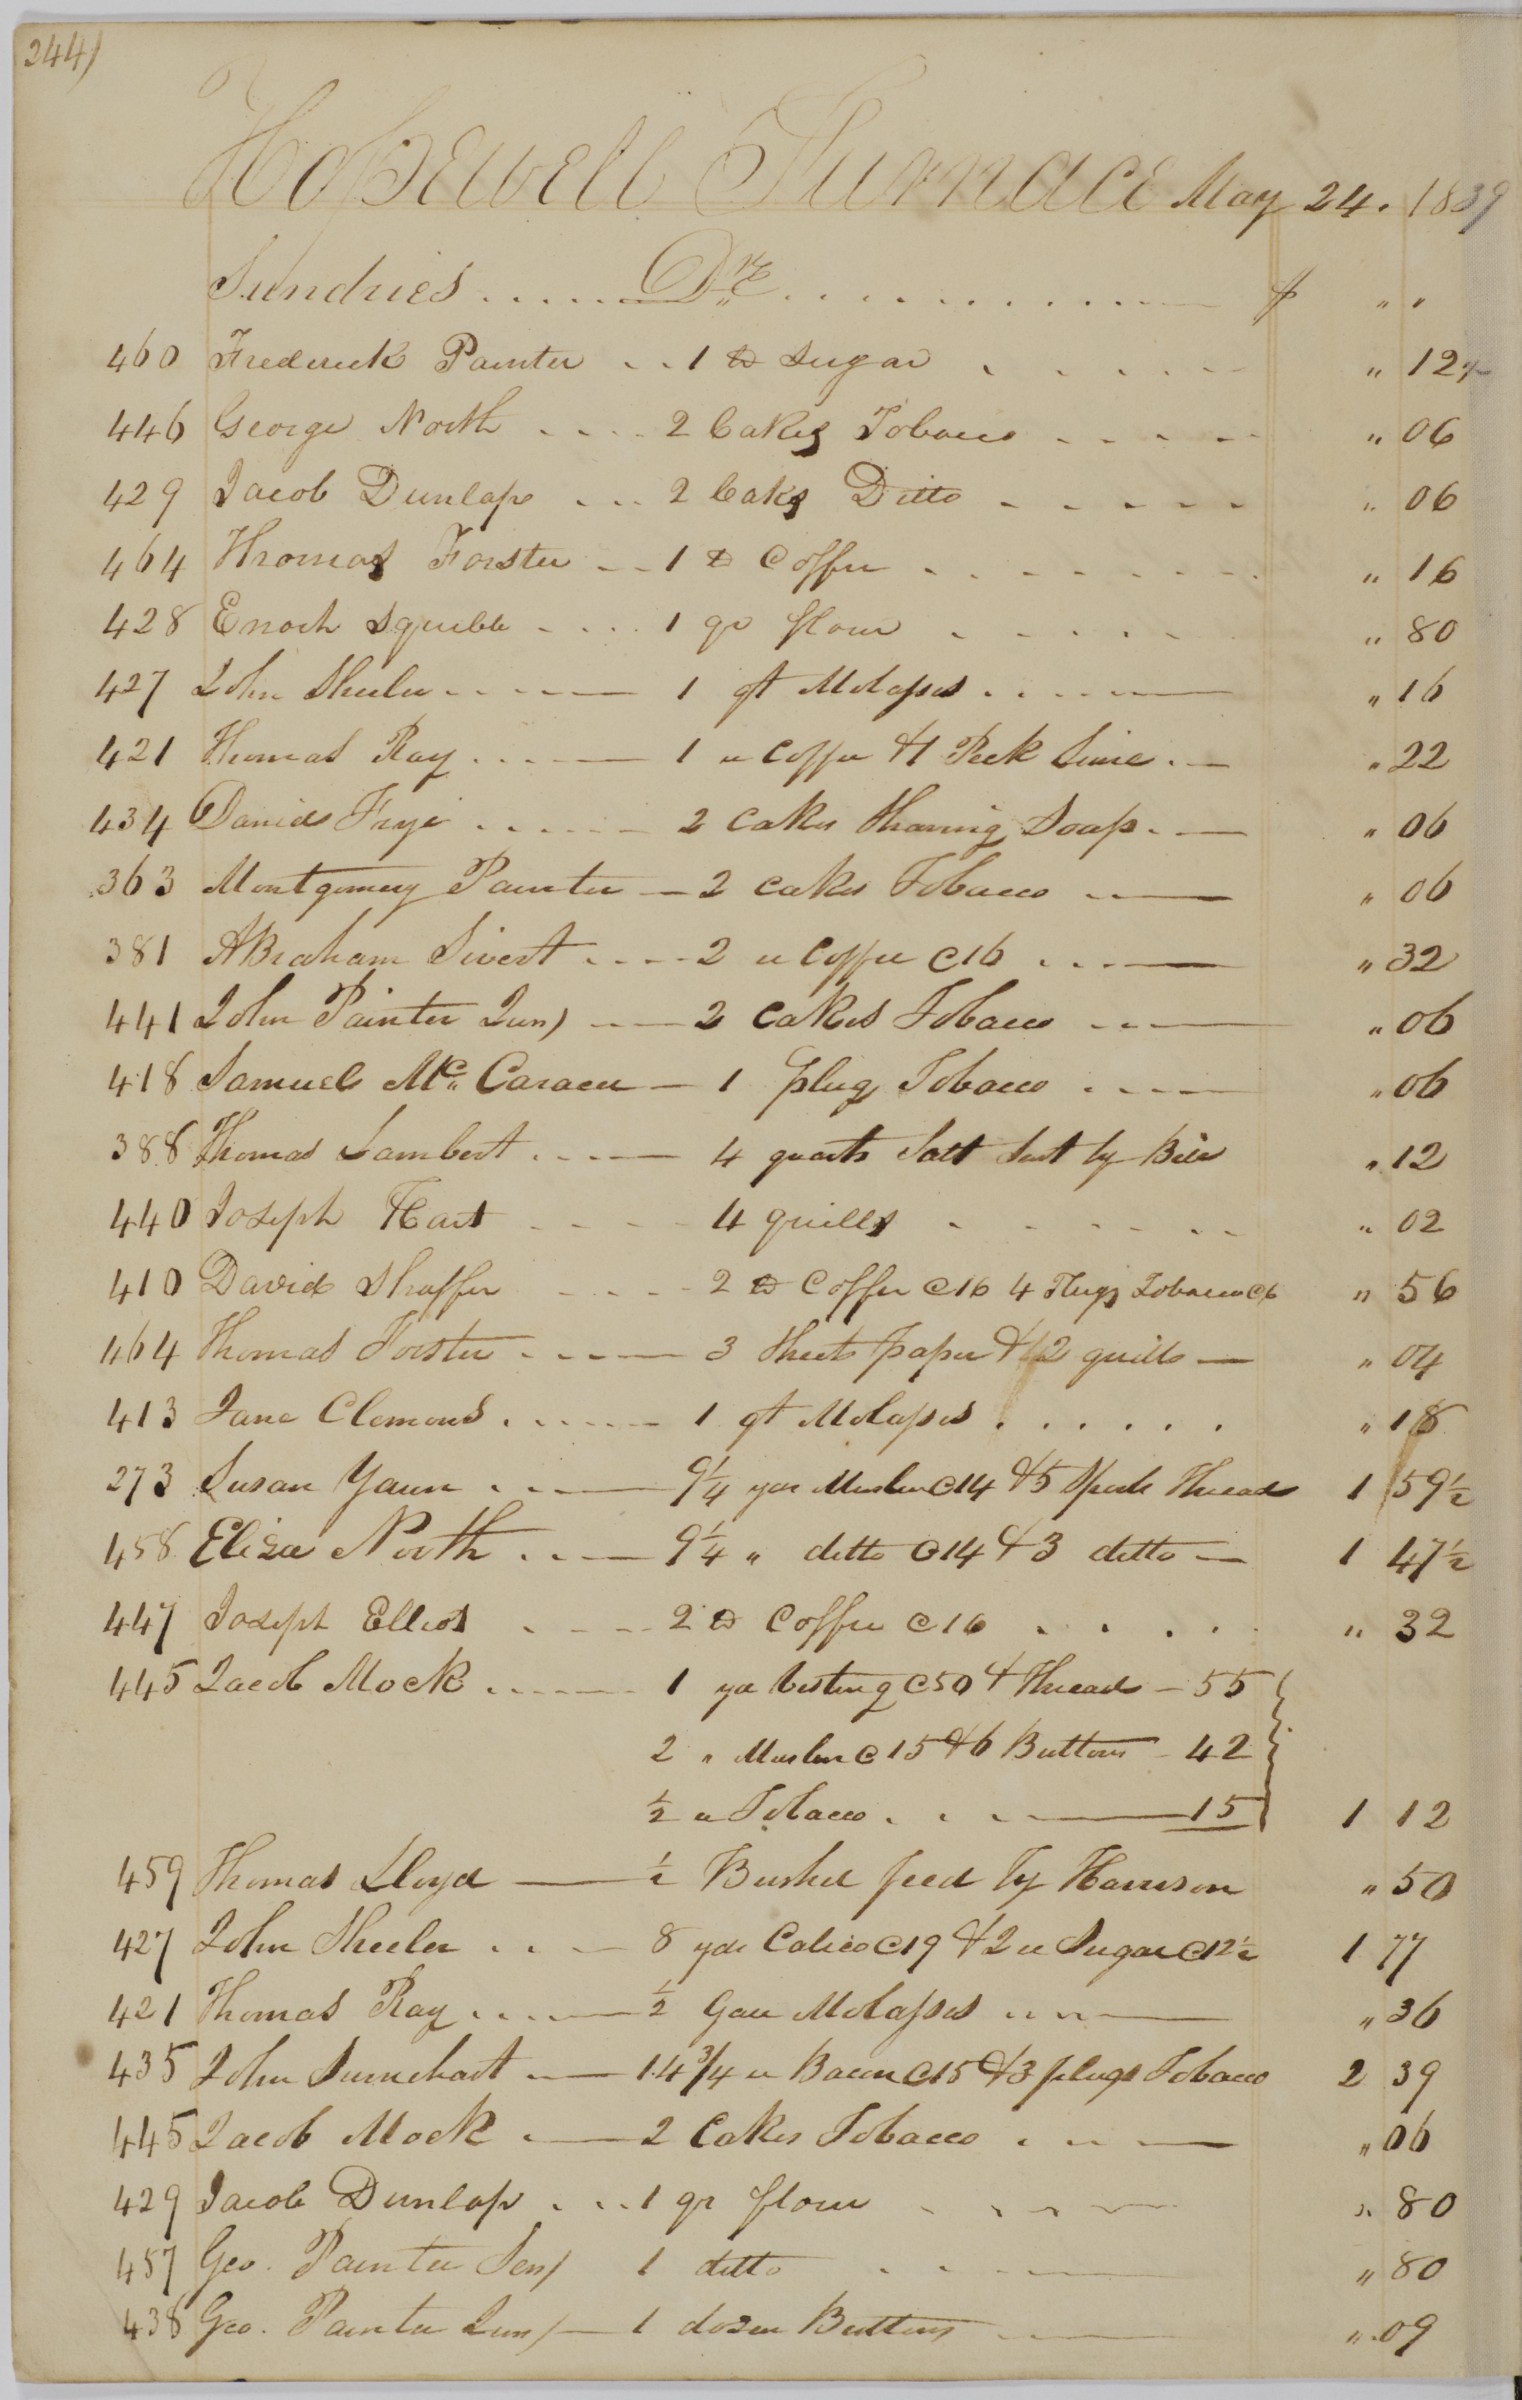 244)
Hopewell Furnace May 24. 1839
Sundries ..... Dr. ............ $ " "
460 Frederick Painter .. 1 lb Sugar ..... " 12½
446 George North .... 2 Cakes Tobacco ..... " 06
429 Jacob Dunlap ... 2 Caks Ditto ..... " 06
464 Thomas Forster -- 1 lb Coffee ........ " 16
428 Enoch Squibb .... 1 qr flour ..... " 80
427 John Sheeler ----- 1 qt Molasses ..... " 16
421 Thomas Ray ..... 1 " Coffee & 1 Peck Lime .- " 22
434 David Frye ..... 2 Cakes Shaving Soap .- " 06
363 Montgomery Painter - 2 cakes Tobacco --- " 06
381 ABraham Sivert .... 2 " Coffee @16 ...- " 32
441 John Painter Jun) --- 2 cakes Tobacco --- " 06
418 Samuel Mc. Caraen - 1 plug Tobacco .... " 06
388 Thomas Lambert ..... 4 quarts Salt Sent by Bill " 12
440 Joseph Hart .... 4 quills ...... " 02
410 David Shaffer .... 2 lb Coffee @16 4 Plugs Tobacco @6 " 56
464 Thomas Forster ..... 3 Sheets paper & 2 quills - " 04
413 Jane Clemons ...... 1 qt Molasses ...... " 18
273 Susan Yaun .... 9¼ yds Muslin @14 & 5 Spools Thread 1 59½
458 Eliza North ... 9¼ " ditto @14 & 3 ditto - 1 47½
447 Joseph Elliot .... 2 lb Coffee @16 ..... " 32
445 Jacob Mock ..... 1 yd Vesting @50 & Thread - 55
2 " Muslin @15 & 6 Buttons - 42
½ " Tobacco ... 15 1 12
459 Thomas Lloyd - ½ Bushel feed by Harrison " 50
427 John Sheeler ... 8 yds Calico @19 & 2 " Sugar @12½ 1 77
421 Thomas Ray .... ½ Gall Molasses ... " 36
435 John Linnehart .- 14¾ " Bacon @15 & 3 plugs Tobacco 2 39
445 Jacob Mock .- 2 Cakes Tobacco ... " 06
429 Jacob Dunlap ... 1 qr flour .... " 80
457 Geo. Painter Sen) 1 ditto .... " 80
438 Geo. Painter Jun) - 1 dozen Buttons .- " 09